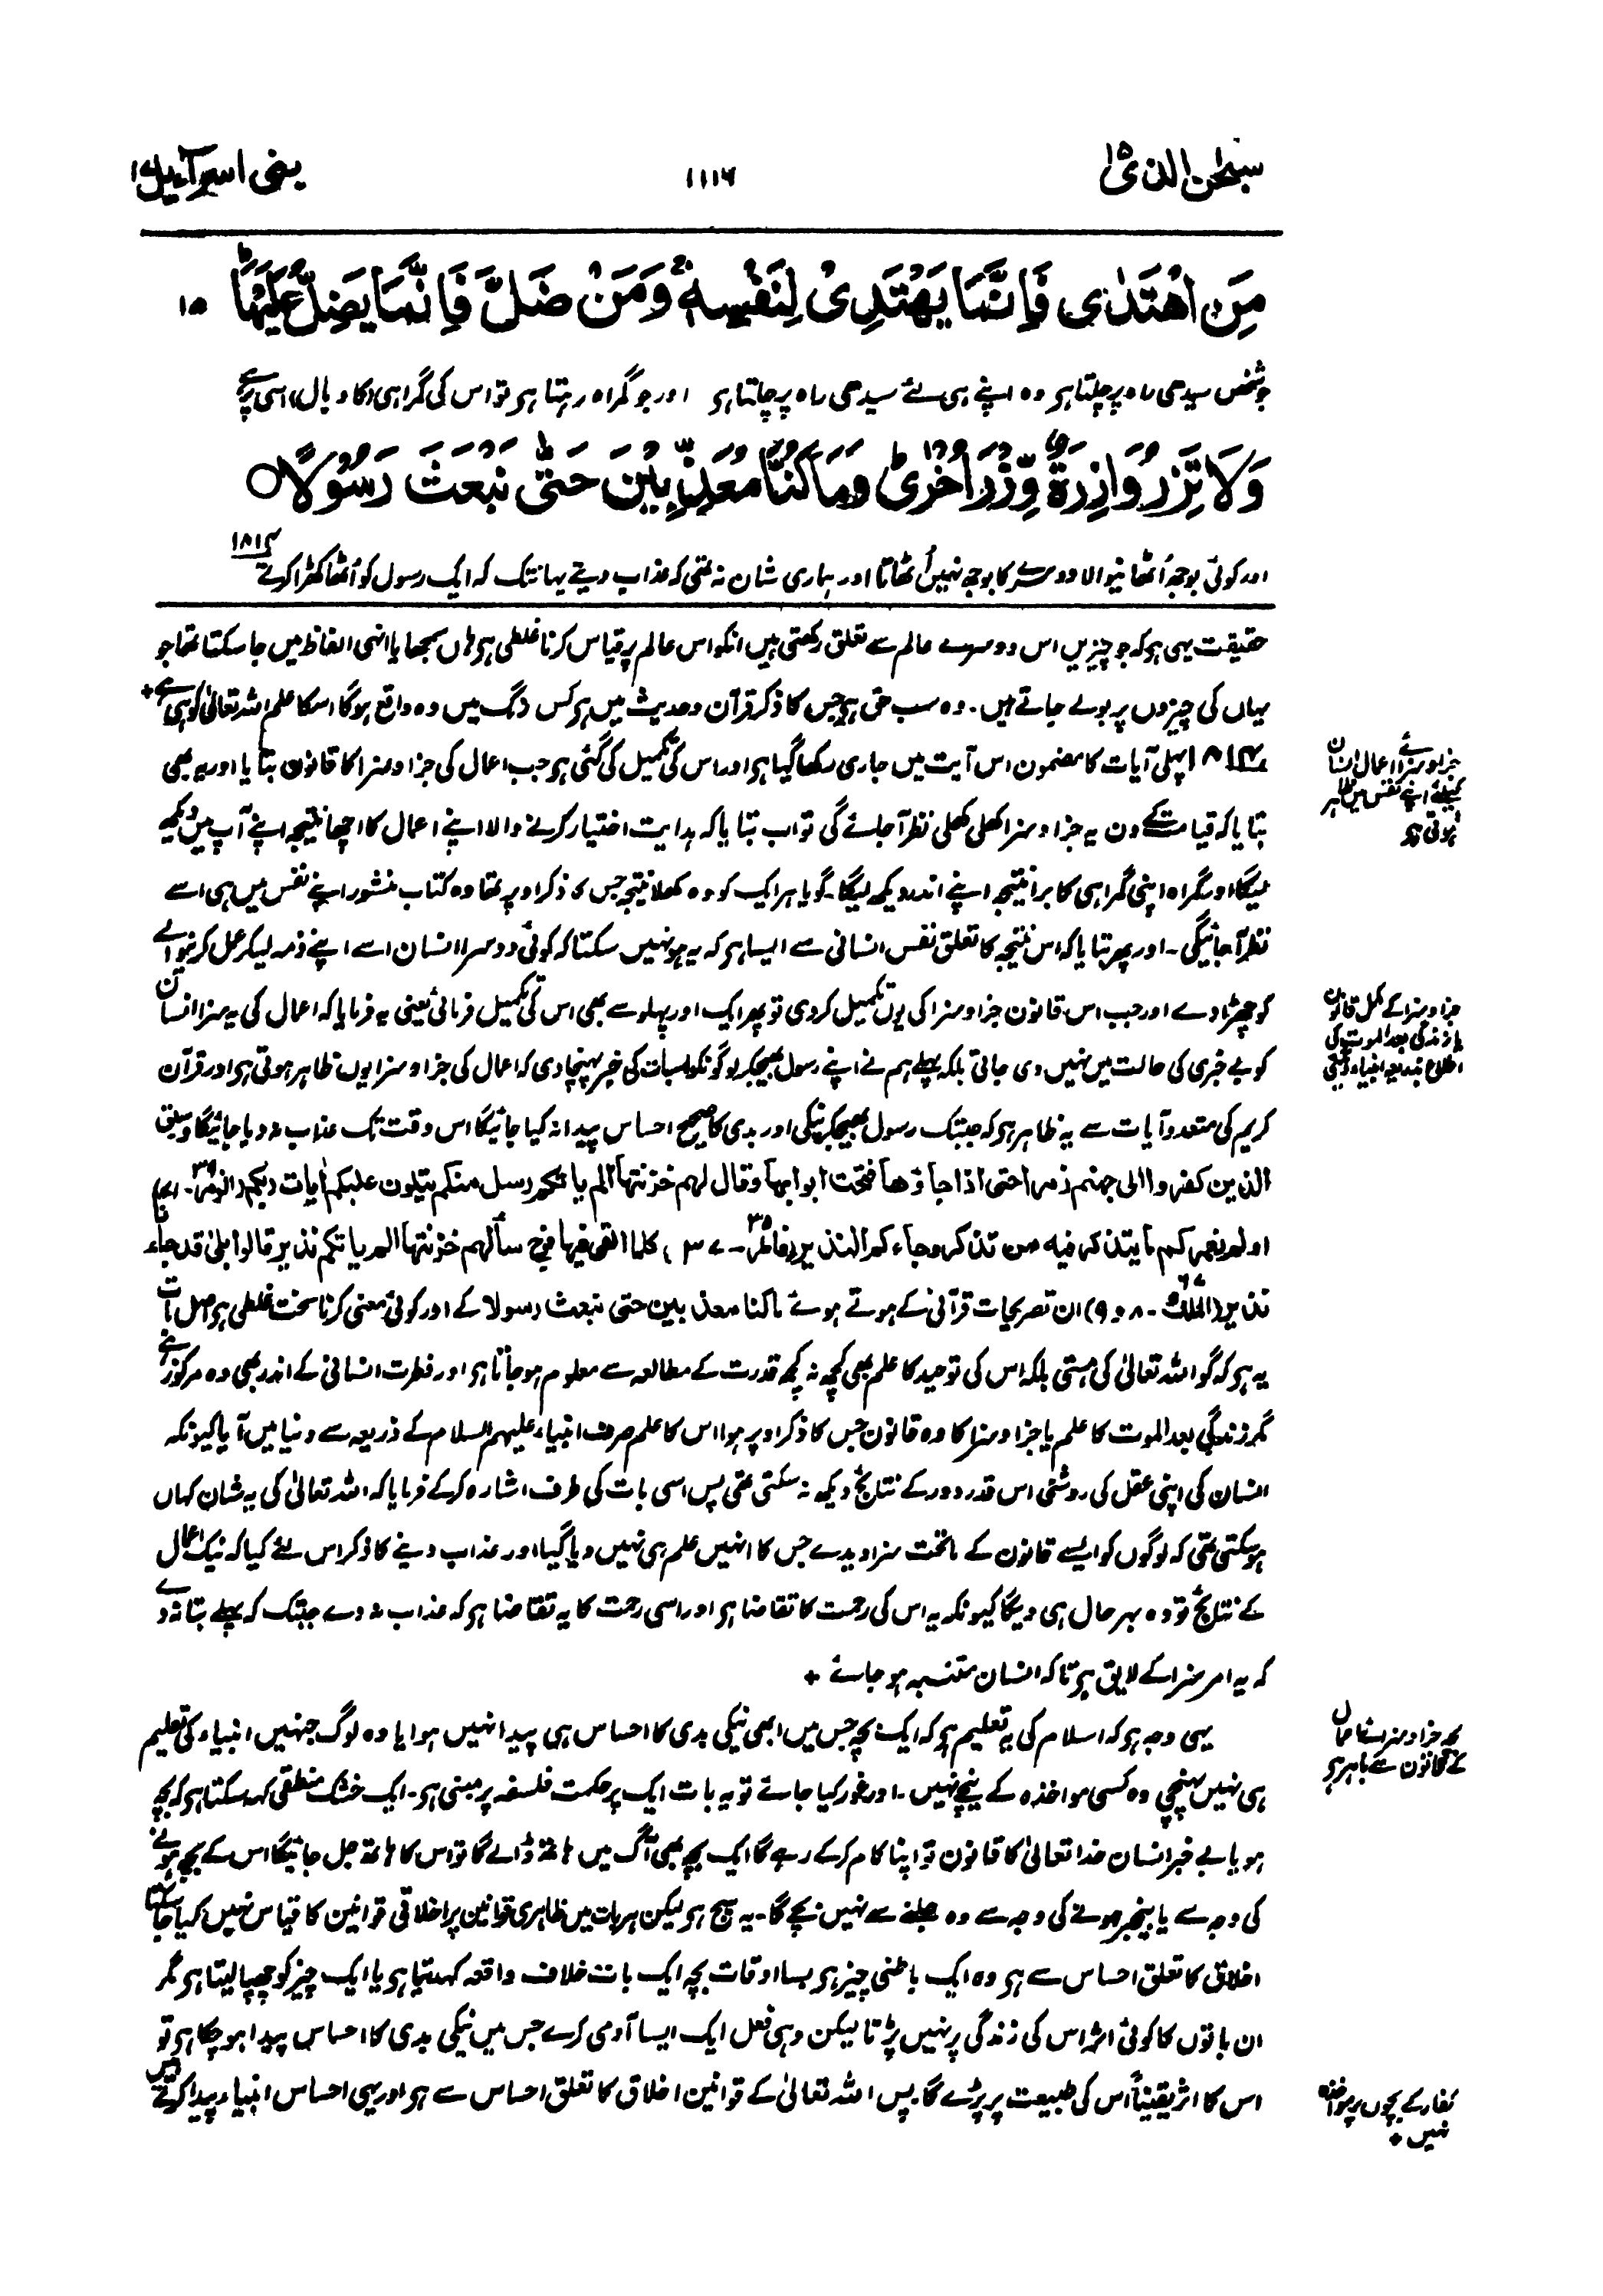 سبحٰن الذی ۱۵
۱۱۱۶
بنی اسرآءیل ۱۷
مَنِ اهْتَدٰى فَاِنَّمَا یَهْتَدِیْ لِنَفْسِهٖ ۚ وَمَنْ ضَلَّ فَاِنَّمَا یَضِلُّ عَلَیْهَا ؕ ۱۵
جو شخص سیدھی راہ پر چلتا ہو وہ اپنے ہی لئے سیدھی راہ پر چلتا ہو اور جو گمراہ رہتا ہو تو اس کی گمراہی (کا وبال) اسی پر ہے
وَلَا تَزِرُ وَازِرَةٌ وِّزْرَ اُخْرٰی ؕ وَمَا كُنَّا مُعَذِّبِیْنَ حَتّٰی نَبْعَثَ رَسُوْلًا ○
اور کوئی بوجھ اُٹھا نیوالا دوسرے کا بوجھ نہیں اُٹھاتا اور ہماری شان نہ تھی کہ عذاب دیتے یہانتک کہ ایک رسول کو اُٹھا کھڑا کرتے ۱۸۱۴
حقیقت یہی ہو کہ جو چیزیں اس دوسرے عالم سے تعلق رکھتی ہیں انکو اس عالم پر قیاس کرنا غلطی ہو ہاں سمجھایا انہی الفاظ میں جا سکتا تھا جو
یہاں کی چیزوں پر بولے جاتے ہیں۔ وہ سب حق ہو جس کا ذکر قرآن و حدیث میں ہو کس رنگ میں وہ واقع ہو گا اسکا علم اللہ تعالیٰ کو ہی ہے +
۱۸۱۴ پہلی آیات کا مضمون اس آیت میں جاری رکھا گیا ہو اور اس کی تکمیل کی گئی ہو جب اعمال کی جزا و سزا کا قانون بتایا اور یہ بھی
بتایا کہ قیامت کے دن یہ جزا و سزا کھلی کھلی نظر آ جائے گی تو اب بتایا کہ ہدایت اختیار کرنے والا اپنے اعمال کا اچھا نتیجہ اپنے آپ میں دیکھ
لیگا اور گمراہ اپنی گمراہی کا برا نتیجہ اپنے اندر دیکھ لیگا۔ گویا ہر ایک کو وہ کھلا نتیجہ جس کا ذکر اوپر تھا وہ کتاب منشور اپنے نفس میں ہی اسے
نظر آ جائیگی۔ اور پھر بتایا کہ اس نتیجہ کا تعلق نفس انسانی سے ایسا ہو کہ یہ ہو نہیں سکتا کہ کوئی دوسرا انسان اسے اپنے ذمہ لیکر عمل کرنیوالے
کو چھڑا دے اور جب اس قانون جزا و سزا کی یوں تکمیل کر دی تو پھر ایک اور پہلو سے بھی اس کی تکمیل فرمائی یعنی یہ فرمایا کہ اعمال کی یہ سزا انسان
کو بے خبری کی حالت میں نہیں دی جاتی بلکہ پہلے ہم نے اپنے رسول بھیجکر لوگونکو اسبات کی خبر پہنچا دی کہ اعمال کی جزا و سزا یوں ظاہر ہوتی ہو اور قرآن
کریم کی متعدد آیات سے یہ ظاہر ہو کہ جبتک رسول بھیجکر نیکی اور بدی کا صحیح احساس پیدا نہ کیا جائیگا اس وقت تک عذاب نہ دیا جائیگا وسیق
الذین کفروا الی جہنم زمرا حتی اذا جاؤھا فتحت ابوابھا وقال لہم خزنتھا الم یاتکم رسل منکم یتلون علیکم اٰیات ربکم (الزمر ۳۹۔ ۷۱)
اولم نعمرکم ما یتذکر فیہ من تذکر وجاءکم النذیر (فاطر ۳۵۔ ۳۷) کلما القی فیھا فوج سألھم خزنتھا الم یاتکم نذیر قالوا بلیٰ قد جاءنا
نذیر (الملک ۶۷۔ ۸ و ۹) ان تصریحات قرآنی کے ہوتے ہوئے ما کنا معذبین حتی نبعث رسولا کے اور کوئی معنی کرنا سخت غلطی ہو اصل بات
یہ ہو کہ گو اللہ تعالیٰ کی ہستی بلکہ اس کی توحید کا علم بھی کچھ نہ کچھ قدرت کے مطالعہ سے معلوم ہو جاتا ہو اور فطرت انسانی کے اندر بھی وہ مرکوز ہے
مگر زندگی بعد الموت کا علم یا جزا و سزا کا وہ قانون جس کا ذکر اوپر ہوا اس کا علم صرف انبیاء علیہم السلام کے ذریعہ سے دنیا میں آیا کیونکہ
انسان کی اپنی عقل کی روشنی اس قدر دور کے نتائج دیکھ نہ سکتی تھی پس اسی بات کی طرف اشارہ کر کے فرمایا کہ اللہ تعالیٰ کی یہ شان کہاں
ہو سکتی تھی کہ لوگوں کو ایسے قانون کے ماتحت سزا دیدے جس کا انہیں علم ہی نہیں دیا گیا اور عذاب دینے کا ذکر اس لئے کیا کہ نیک اعمال
کے نتائج تو وہ بہر حال ہی دیگا کیونکہ یہ اس کی رحمت کا تقاضا ہو اور اسی رحمت کا یہ تقاضا ہو کہ عذاب نہ دے جبتک کہ پہلے بتا نہ دے
کہ یہ امر سزا کے لایق ہو تا کہ انسان متنبہ ہو جائے +
یہی وجہ ہو کہ اسلام کی یہ تعلیم ہو کہ ایک بچہ جس میں ابھی نیکی بدی کا احساس ہی پیدا نہیں ہوا یا وہ لوگ جنہیں انبیاء کی تعلیم
ہی نہیں پہنچی وہ کسی مواخذہ کے نیچے نہیں۔ اور غور کیا جائے تو یہ بات ایک پر حکمت فلسفہ پر مبنی ہو۔ ایک خشک منطقی کہہ سکتا ہو کہ بچہ
ہو یا بے خبر انسان خدا تعالیٰ کا قانون تو اپنا کام کر کے رہے گا ایک بچہ بھی آگ میں ہاتھ ڈالے گا تو اس کا ہاتھ جل جائیگا اس کے بچہ ہونے
کی وجہ سے یا بیخبر ہونے کی وجہ سے وہ جلنے سے نہیں بچے گا۔ یہ سچ ہو لیکن ہر بات میں ظاہری قوانین پر اخلاقی قوانین کا قیاس نہیں کیا جا سکتا
اخلاق کا تعلق احساس سے ہو وہ ایک باطنی چیز ہو بسا اوقات بچہ ایک بات خلاف واقعہ کہدیتا ہو یا ایک چیز کو چھپا لیتا ہو مگر
ان باتوں کا کوئی اثر اس کی زندگی پر نہیں پڑتا لیکن وہی فعل ایک ایسا آدمی کرے جس میں نیکی بدی کا احساس پیدا ہو چکا ہو تو
اس کا اثر یقیناً اس کی طبیعت پر پڑے گا۔ پس اللہ تعالیٰ کے قوانین اخلاق کا تعلق احساس سے ہو اور یہی احساس انبیاء پیدا کرتے ہیں
جزا و سزائے اعمال انسان
کیلئے اپنے نفس میں ظاہر
ہوتی ہو
جزا و سزا کے مکمل قانون
یا زندگی بعد الموت کی
اطلاع بذریعہ انبیاء
بچہ جزا و سزائے اعمال
کے قانون سے باہر ہو
کفار کے بچوں پر مواخذہ
نہیں +